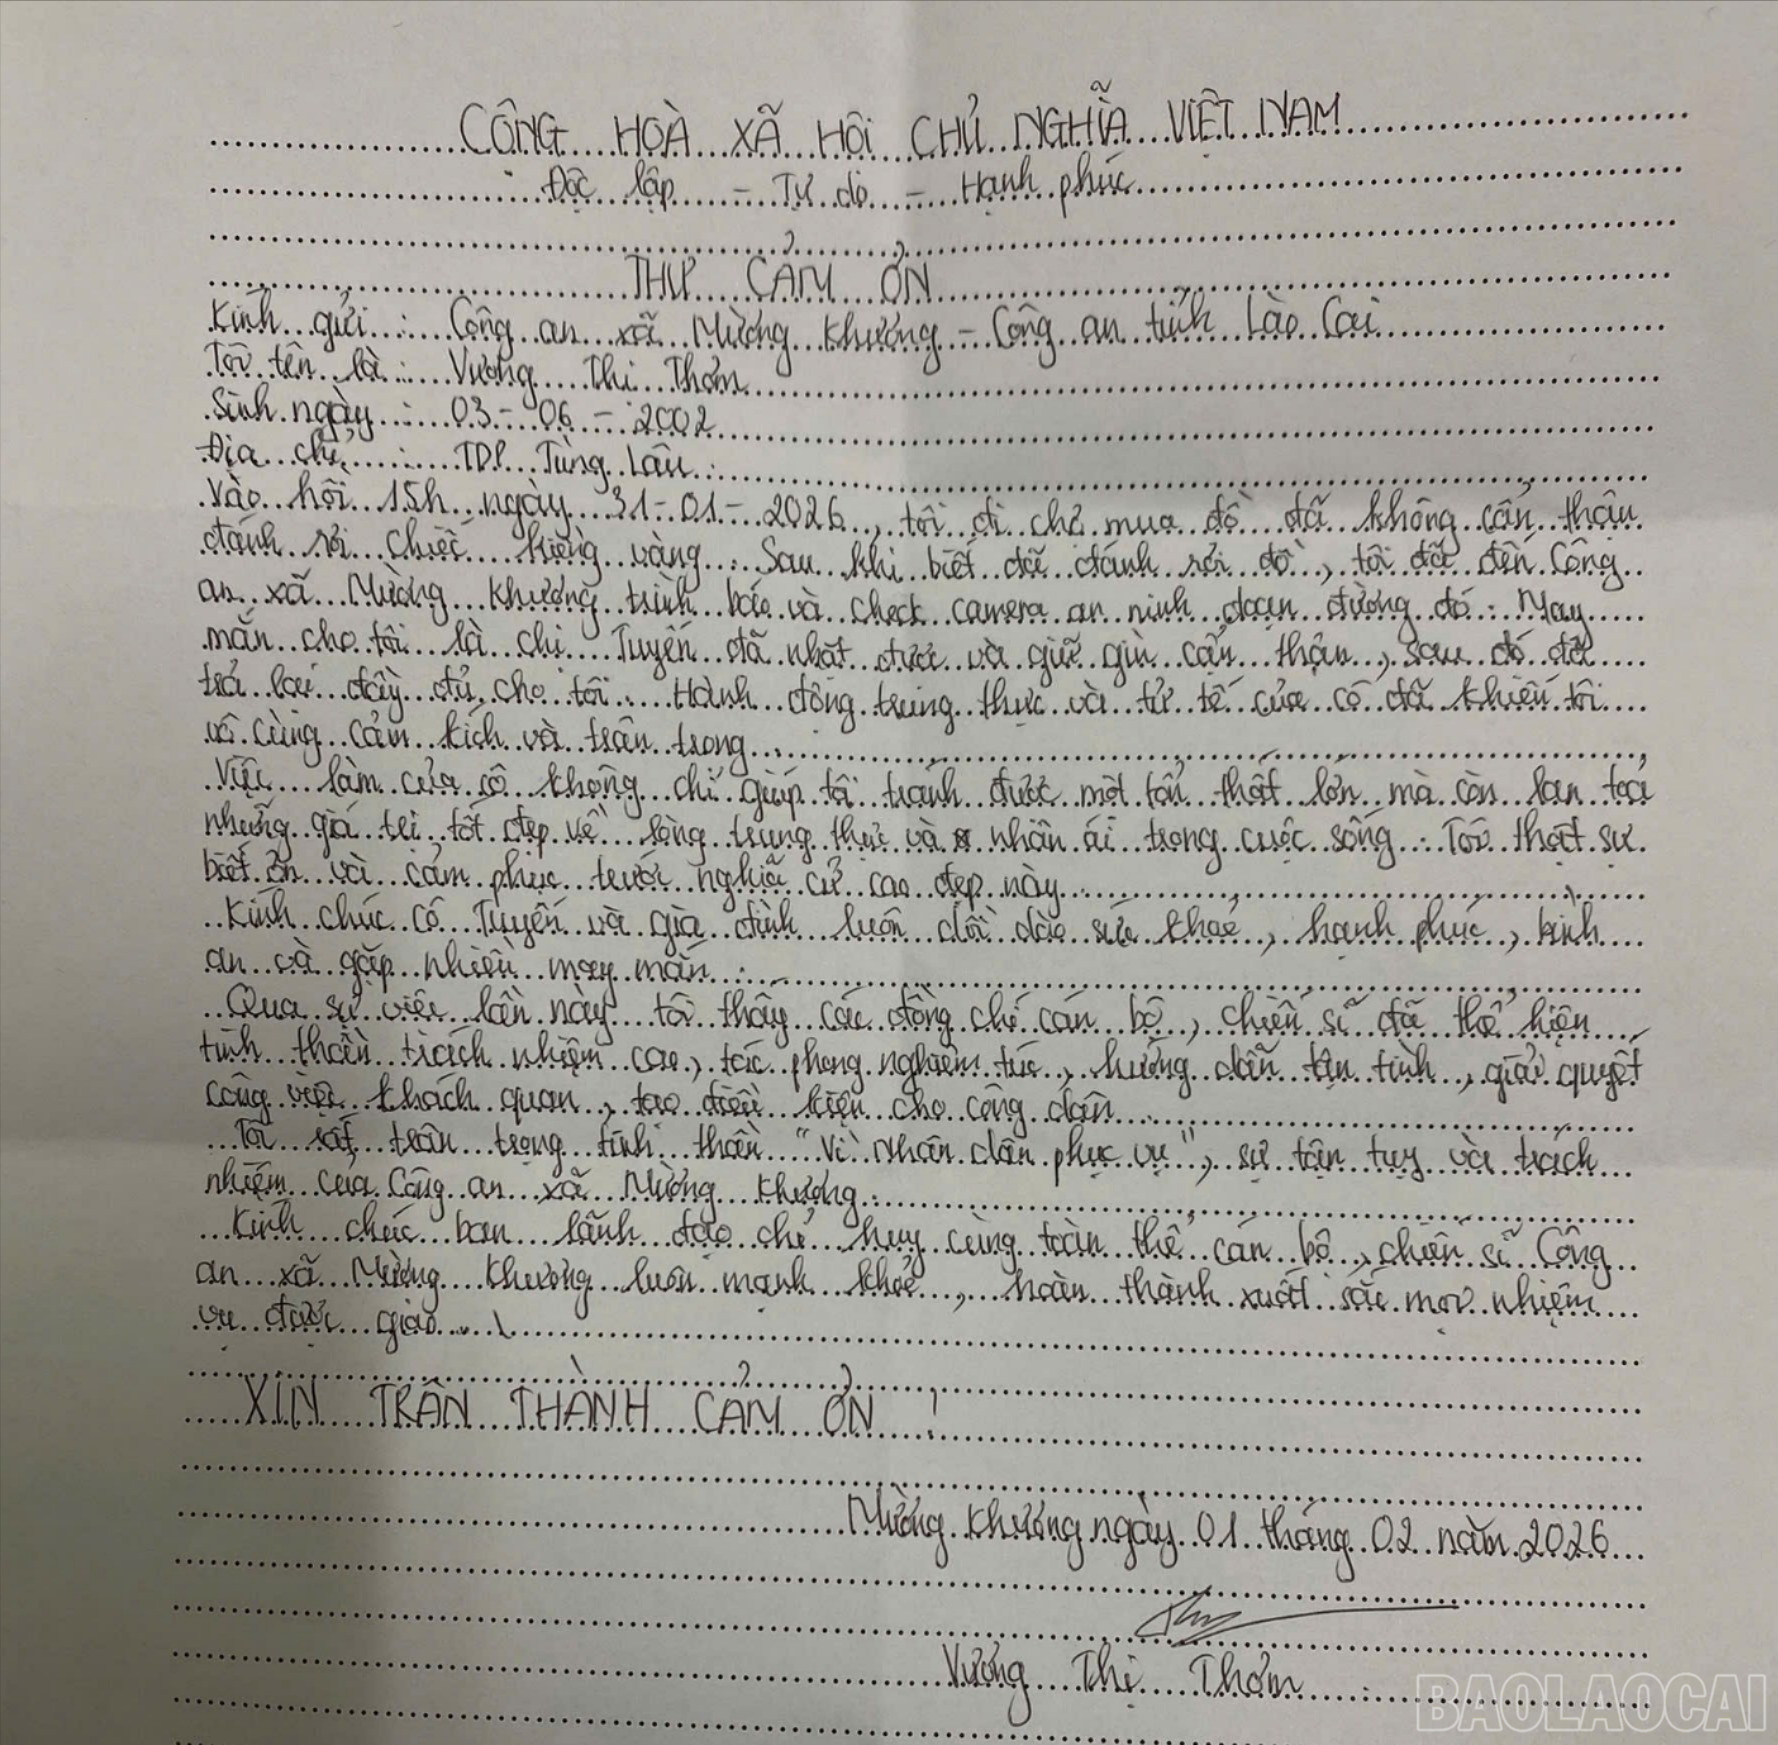 CỘNG HOÀ XÃ HỘI CHỦ NGHĨA VIỆT NAM
Độc lập - Tự do - Hạnh phúc
THƯ CẢM ƠN
Kính gửi : Công an xã Mường Khương - Công an tỉnh Lào Cai
Tôi tên là : Vương Thị Thơm
Sinh ngày : 03 - 06 - 2002
Địa chỉ : TDP Tùng Lâu
Vào hồi 15h ngày 31 - 01 - 2026, tôi đi chợ mua đồ đã không cẩn thận
đánh rơi chiếc kiềng vàng. Sau khi biết đã đánh rơi đồ, tôi đã đến Công
an xã Mường Khương trình báo và check camera an ninh đoạn đường đó. May
mắn cho tôi là chị Tuyến đã nhặt được và giữ gìn cẩn thận, sau đó đã
trả lại đầy đủ cho tôi. Hành động trung thực và tử tế của cô đã khiến tôi
vô cùng cảm kích và trân trọng.
Việc làm của cô không chỉ giúp tôi tránh được một tổn thất lớn mà còn lan toả
những giá trị tốt đẹp về lòng trung thực và nhân ái trong cuộc sống. Tôi thật sự
biết ơn và cảm phục trước nghĩa cử cao đẹp này.
Kính chúc cô Tuyến và gia đình luôn dồi dào sức khoẻ, hạnh phúc, bình
an và gặp nhiều may mắn.
Qua sự việc lần này tôi thấy các đồng chí cán bộ, chiến sĩ đã thể hiện
tinh thần trách nhiệm cao, tác phong nghiêm túc, hướng dẫn tận tình, giải quyết
công việc khách quan, tạo điều kiện cho công dân.
Tôi rất trân trọng tinh thần "Vì nhân dân phục vụ", sự tận tụy và trách
nhiệm của Công an xã Mường Khương.
Kính chúc ban lãnh đạo chỉ huy cùng toàn thể cán bộ, chiến sĩ Công
an xã Mường Khương luôn mạnh khoẻ, hoàn thành xuất sắc mọi nhiệm
vụ được giao ...\
XIN TRÂN THÀNH CẢM ƠN !
Mường Khương ngày 01 tháng 02 năm 2026
Vương Thị Thơm
BAOLAOCAI